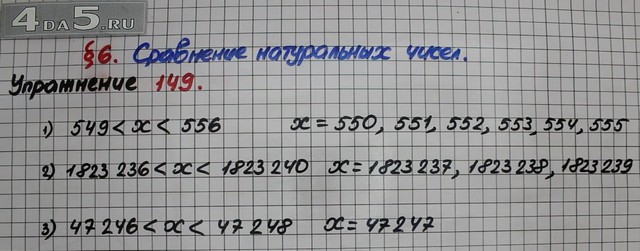 4DA5.RU
§6. Сравнение натуральных чисел.
Упражнение 149.
1) 549 < x < 556 x = 550, 551, 552, 553, 554, 555
2) 1823 236 < x < 1823 240 x = 1823 237, 1823 238, 1823 239
3) 47 246 < x < 47 248 x = 47 247